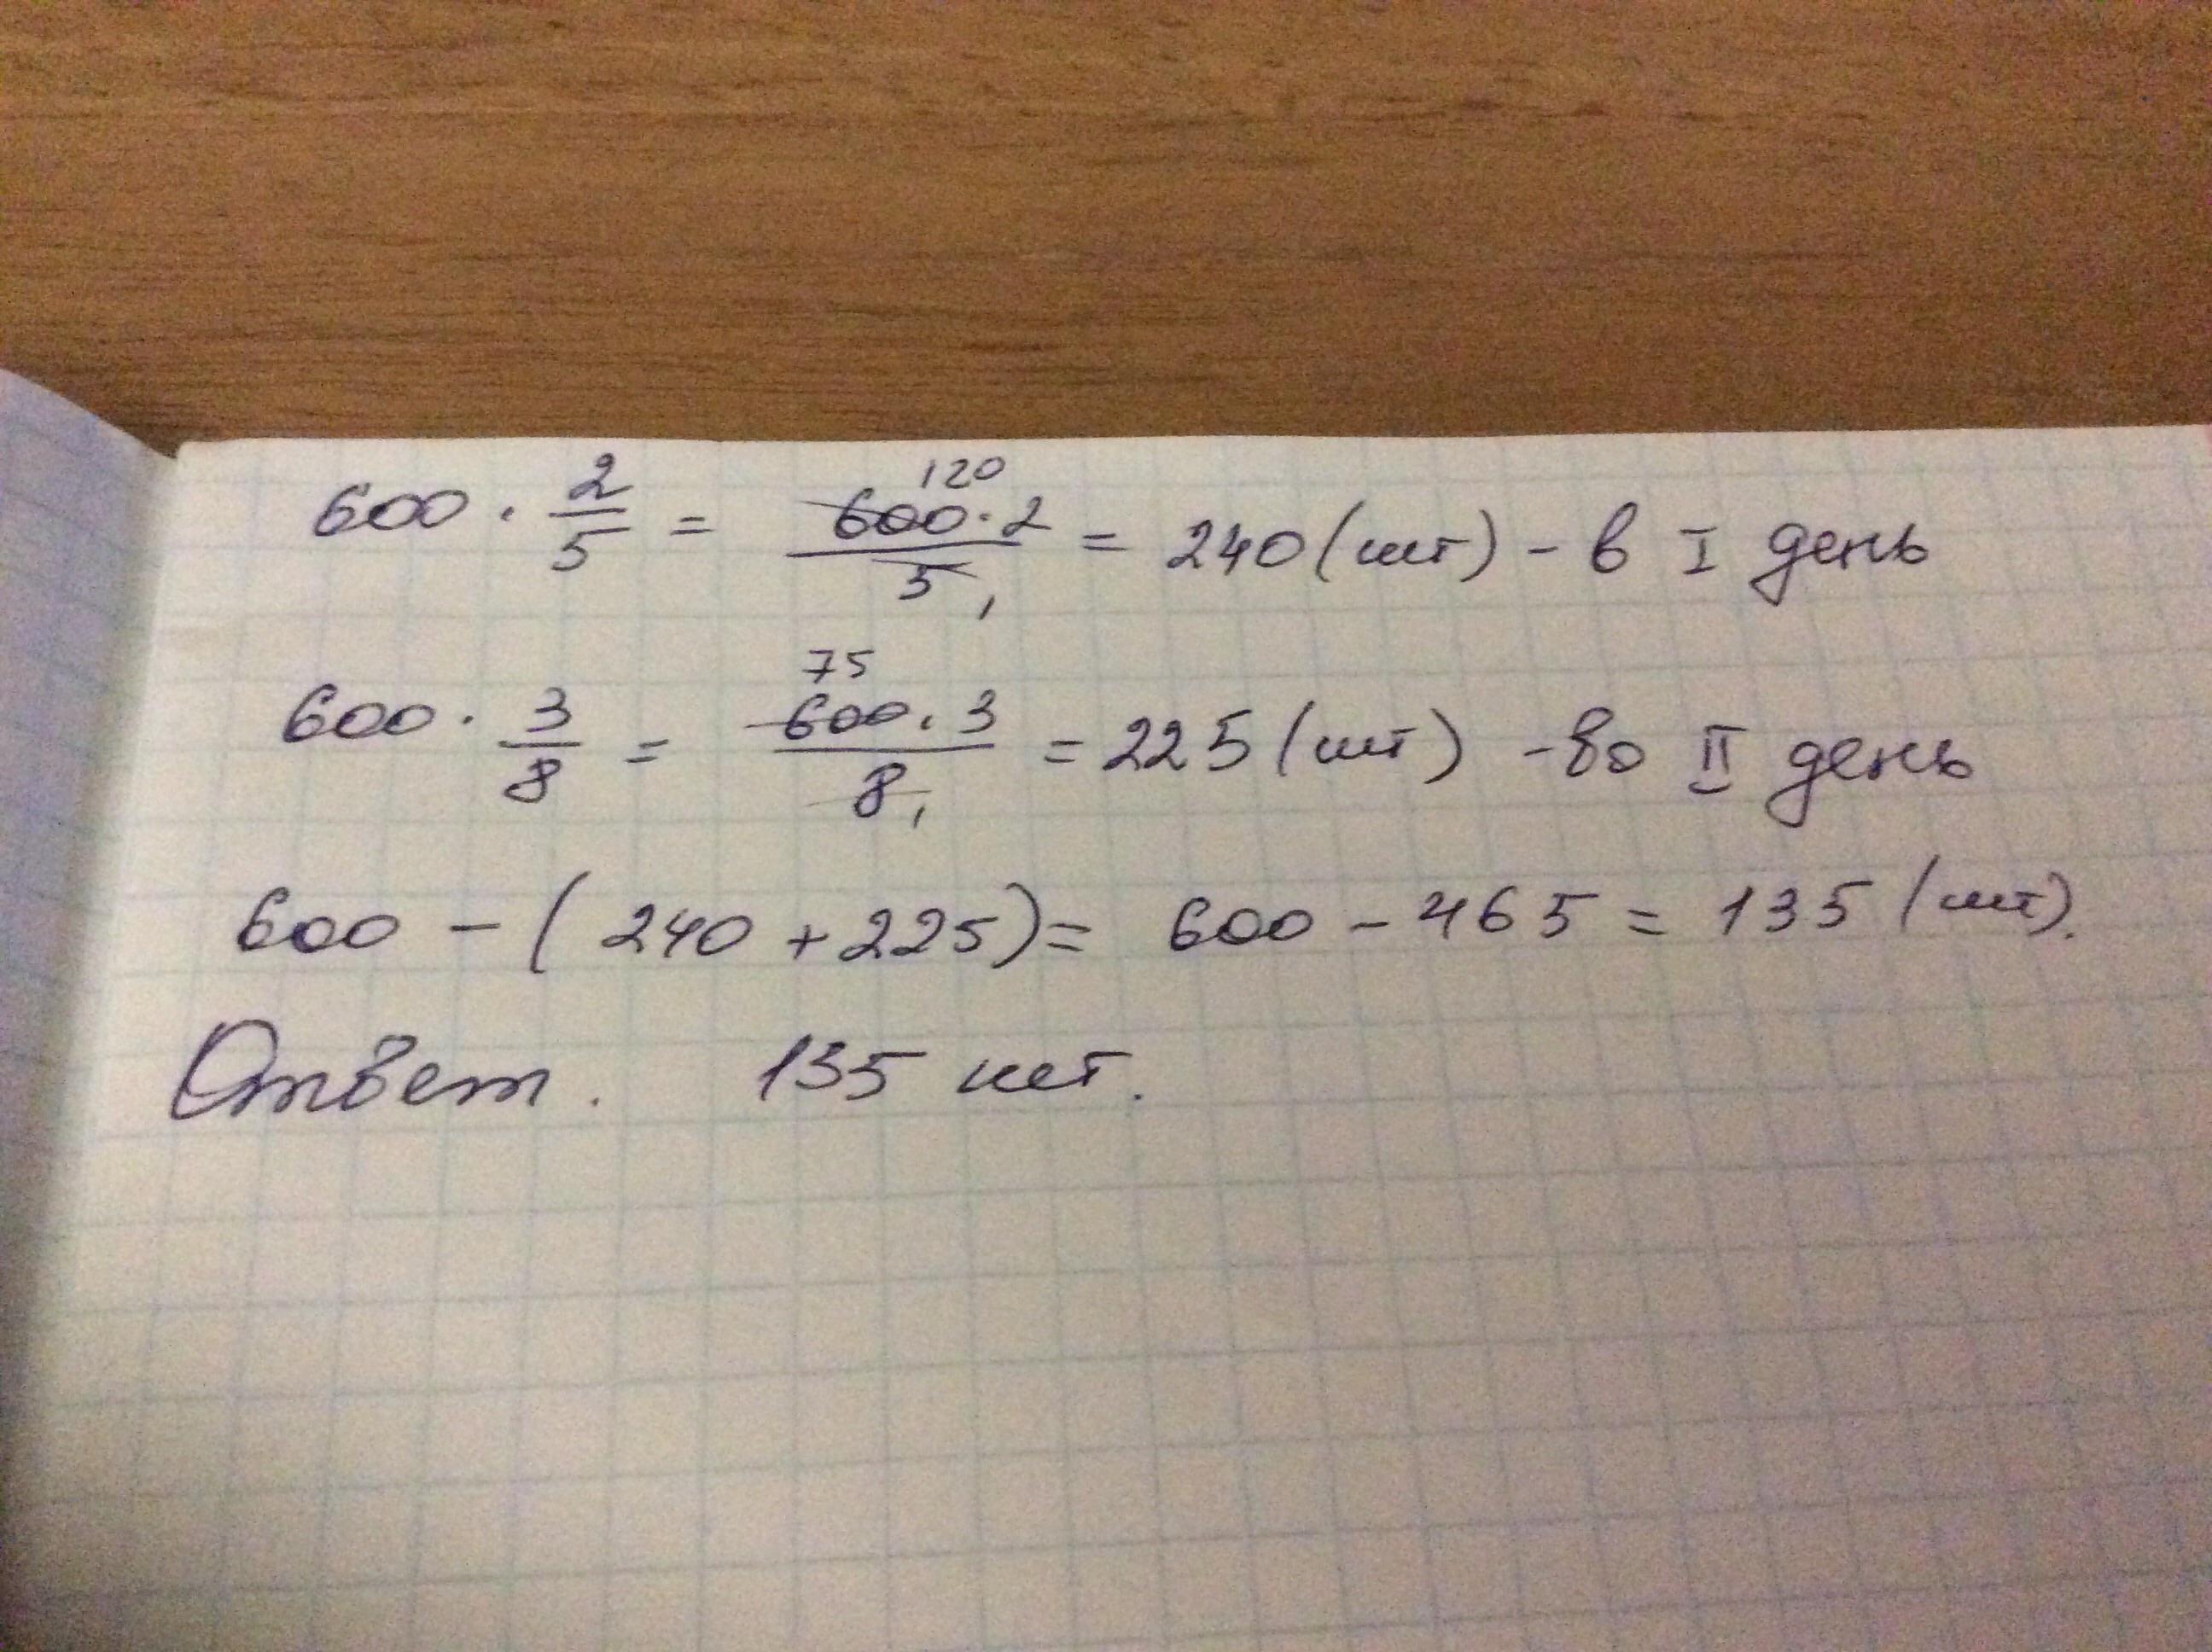 600 · 2/5 = 600 · 2 / 5 = 240 (шт) - в I день (120, 1)
600 · 3/8 = 600 · 3 / 8 = 225 (шт) - во II день (75, 1)
600 - ( 240 + 225) = 600 - 465 = 135 (шт).
Ответ. 135 шт.